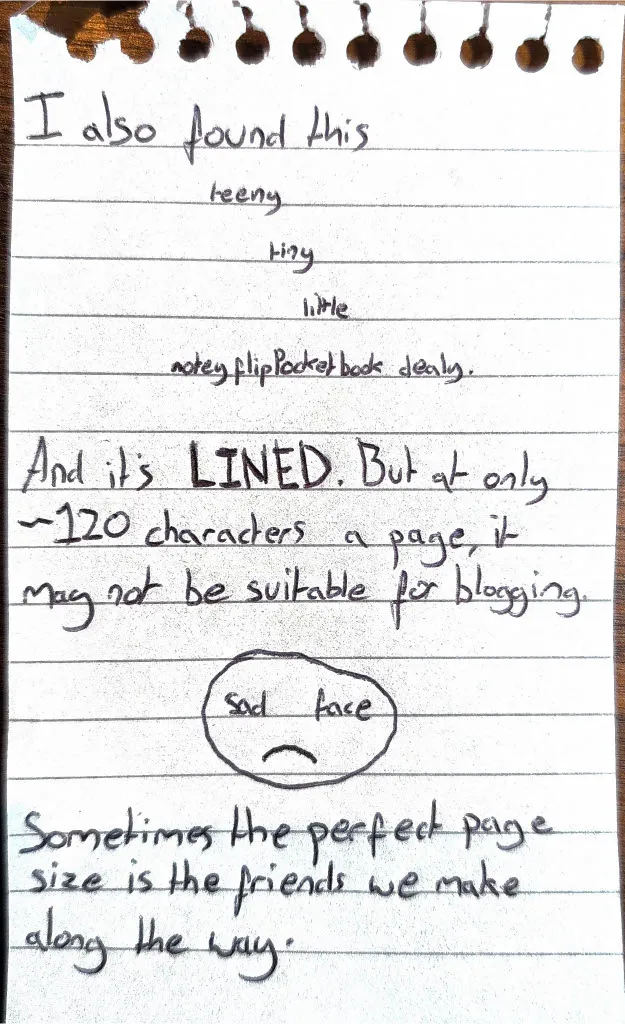 I also found this
teeny
tiny
little
noteyflipPocketbook dealy.
And it's LINED. But at only
~120 characters a page, it
may not be suitable for blogging.
sad face
Sometimes the perfect page
size is the friends we make
along the way.